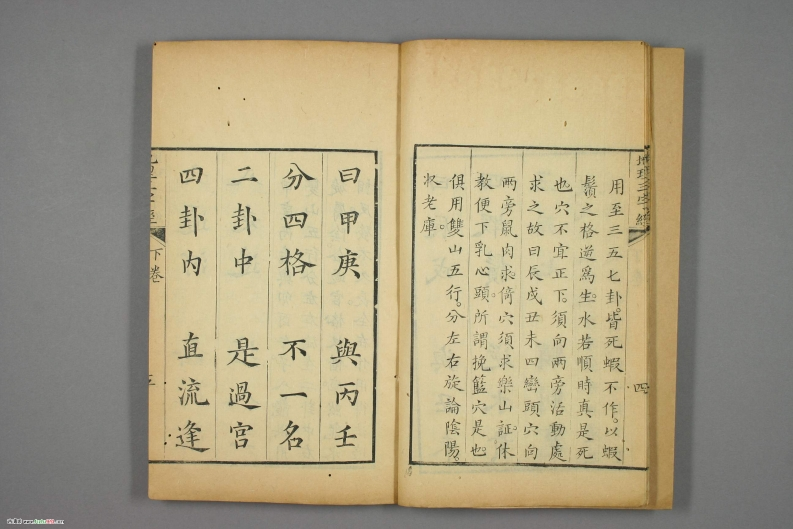 地理三字經
四
用至三五七卦。皆死蝦不作。以蝦
鬚之格逆爲生。水若順時真是死
也穴不宜正下。須向兩旁活動處
求之故曰辰戌丑未四巒頭穴向
兩旁鼠肉求倚穴須求樂山証。休
教便下乳心頭。所謂挽籃穴是也。
俱用雙山五行。分左右旋論陰陽。
收老庫。
曰甲庚 與丙壬
分四格 不一名
二卦中 是過宮
四卦内 直流逢
下卷